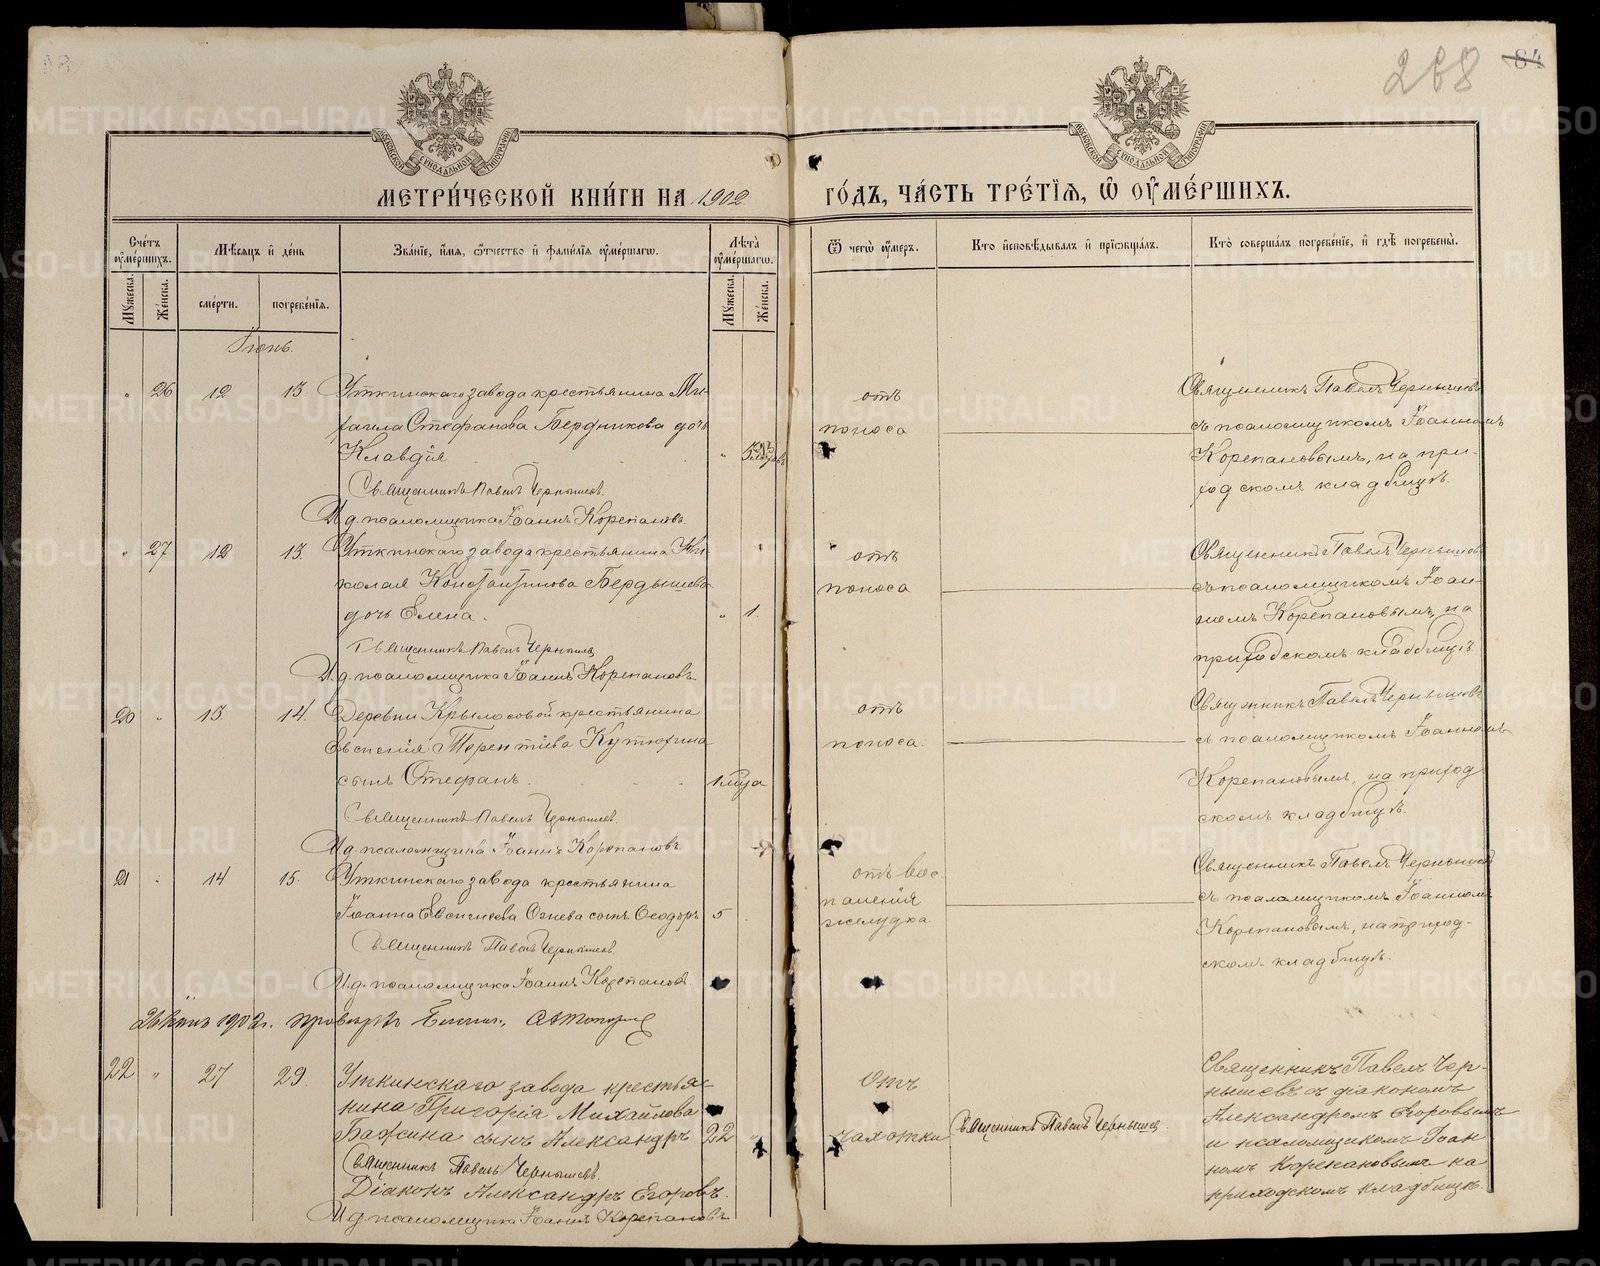 268
84
МЕТРИ́ЧЕСКОЙ КНИ́ГИ НА 1902
ГО́ДЪ, ЧА́СТЬ ТРЕ́ТІѦ, Ѡ ОУМЕ́РШИХЪ.
Сче́тъ оуме́ршихъ.
Мꙋжеска.
Же́нска.
Мѣсяцъ и де́нь
сме́рти.
погребе́нїѧ.
Зва́нїе, и́мѧ, ѻ҆́тчество и фами́лїѧ оуме́ршагѡ.
Лѣ́та оуме́ршагѡ.
Мꙋжеска.
Же́нска.
Ѿ чегѡ̀ оу́меръ.
Кто̀ исповѣ́дывалъ и прїѡбща́лъ.
Кто̀ соверша́лъ погребе́нїе, и гдѣ̀ погребены̀.
Іюнь.
" 26 12 13 Уткинскаго завода крестьянина Ми-
хаила Стефанова Бердникова дочь
Клавдія
Священникъ Павелъ Чернышевъ.
И. д. псаломщика Іоаннъ Корепановъ.
отъ
поноса
Священникъ Павелъ Чернышевъ
съ псаломщикомъ Іоанномъ
Корепановымъ, на при-
ходскомъ кладбищѣ.
" 27 12 13. Уткинскаго завода крестьянина Ни-
колая Константинова Бердышева
дочь Елена. " 1.
Священникъ Павелъ Чернышевъ
И. д. псаломщика Іоаннъ Корепановъ.
отъ
поноса
Священникъ Павелъ Чернышевъ
съ псаломщикомъ Іоан-
номъ Корепановымъ, на
приходскомъ кладбищѣ
20 " 13. 14. Деревни Крылосовой крестьянина
Евсенія Терентіева Кутюхина
сынъ Стефанъ.
Священникъ Павелъ Чернышевъ.
И. д. псаломщика Іоаннъ Корепановъ
отъ
поноса.
Священникъ Павелъ Чернышевъ
съ псаломщикомъ Іоанномъ
Корепановымъ, на приход-
скомъ кладбищѣ.
21 " 14 15. Уткинскаго завода крестьянина
Іоанна Евсигнеева Огнева сынъ Ѳеодоръ 5
Священникъ Павелъ Чернышевъ.
И. д. псаломщика Іоаннъ Корепановъ.
отъ вос-
паленія
желудка
Священникъ Павелъ Чернышевъ
съ псаломщикомъ Іоанномъ
Корепановымъ, на приход-
скомъ кладбищѣ.
1902 г.
22 " 27 29. Уткинскаго завода крестья-
нина Григорія Михайлова
Бажина сынъ Александръ 22
Священникъ Павелъ Чернышевъ.
Діаконъ Александръ Егоровъ.
И. д. псаломщика Іоаннъ Корепановъ
Отъ
чахотки
Священникъ Павелъ Чернышевъ.
Священникъ Павелъ Чер-
нышевъ съ діакономъ
Александромъ Егоровымъ
и псаломщикомъ Іоан-
номъ Корепановымъ на
приходскомъ кладбищѣ.
METRIKI.GASO-URAL.RU